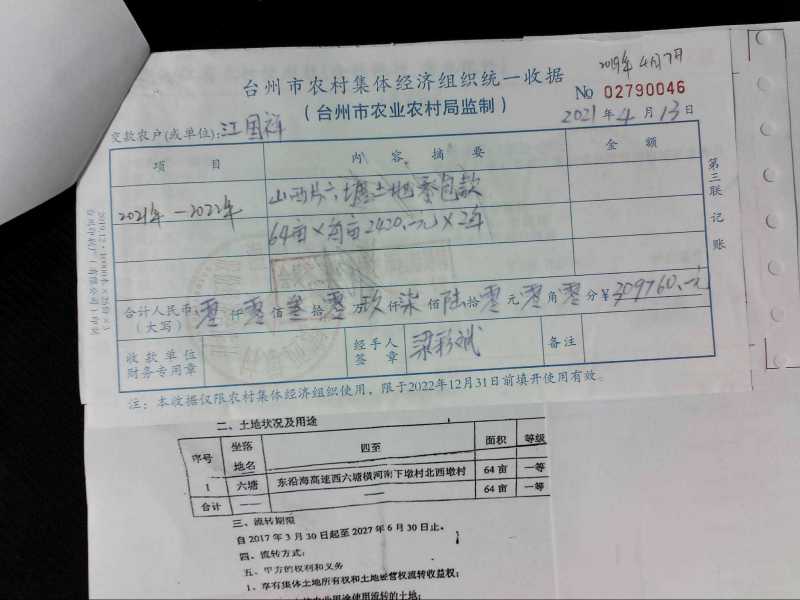 2019年4月7日
台州市农村集体经济组织统一收据
(台州市农业农村局监制)
No 02790046
2021年4月13日
交款农户(或单位):江国祥
项 目 内 容 摘 要 金 额
2021年—2022年 山西片六塘土地承包款
64亩×每亩2420.—元×2年
合计人民币(大写) 零仟零佰叁拾零万玖仟柒佰陆拾零元零角零分¥309760.—元
收款单位财务专用章
经手人签章
备注
第三联 记账
注:本收据仅限农村集体经济组织使用,限于2022年12月31日前填开使用有效。
二、土地状况及用途
序号 坐落地名 四至 面积 等级
1 六塘 东沿海高速西六塘横河南下墩村北西墩村 64亩 一等
合计 —— —— 64亩 一等
三、流转期限
自2017年3月30日起至2027年6月30日止。
四、流转方式:
五、甲方的权利和义务
1、享有集体土地所有权和土地经营权流转收益权;